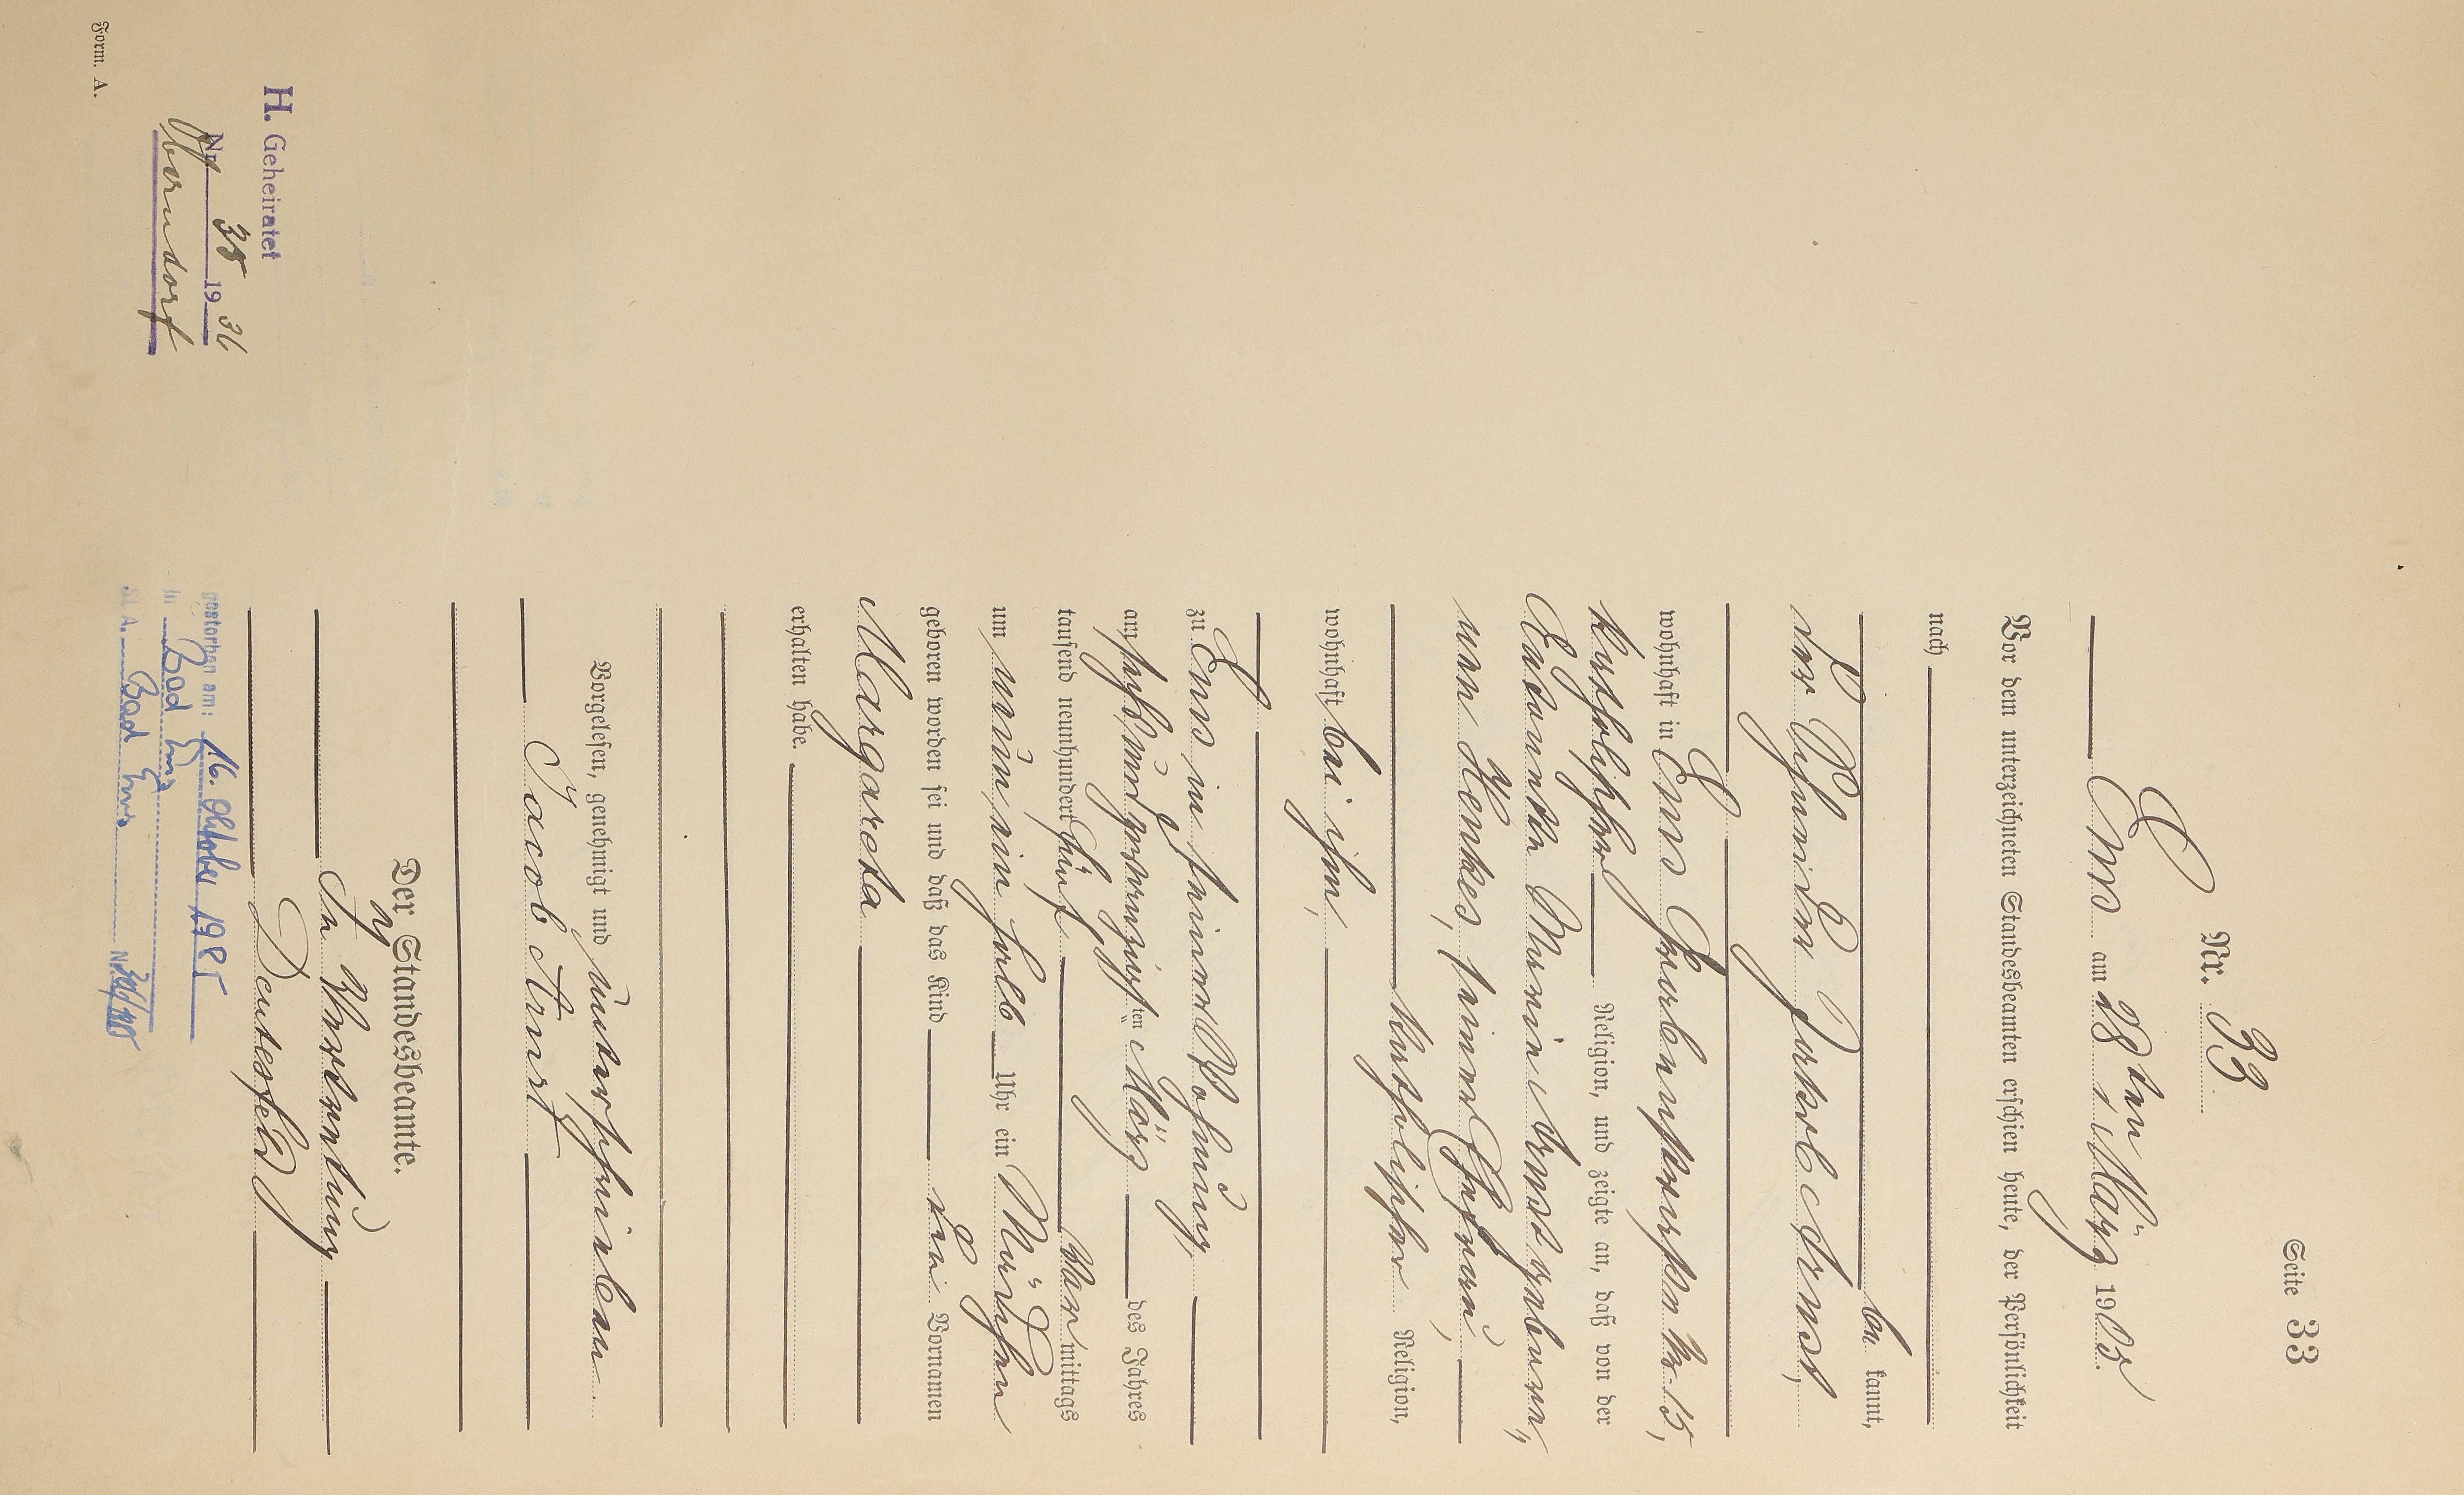 Seite 33
Nr. 33
Ems am 28ten März 1905.
Vor dem unterzeichneten Standesbeamten erschien heute, der Persönlichkeit
nach
be kannt,
der Jakob Arnst,
wohnhaft in Ems Grabenstrasse Nr. 15,
katholischer Religion, und zeigte an, daß von der
Maria Arnst geborenen
Henkes, seiner Ehefrau,
katholischer Religion,
wohnhaft bei ihm,
zu Ems in seiner Wohnung
am sechsundzwanzigsten März des Jahres
tausend neunhundert fünf Vor mittags
um neun ein halb Uhr ein Mädchen
geboren worden sei und daß das Kind die Vornamen
Margareta
erhalten habe.
Vorgelesen, genehmigt und unterschrieben
Jacob Arnst
Der Standesbeamte.
In Vertretung
Deutesfeld
H. Geheiratet
Nr. 38 1936
Form. A.
gestorben am: 16. Oktober 1985
in Bad Ems
St. A. Bad Ems Nr.